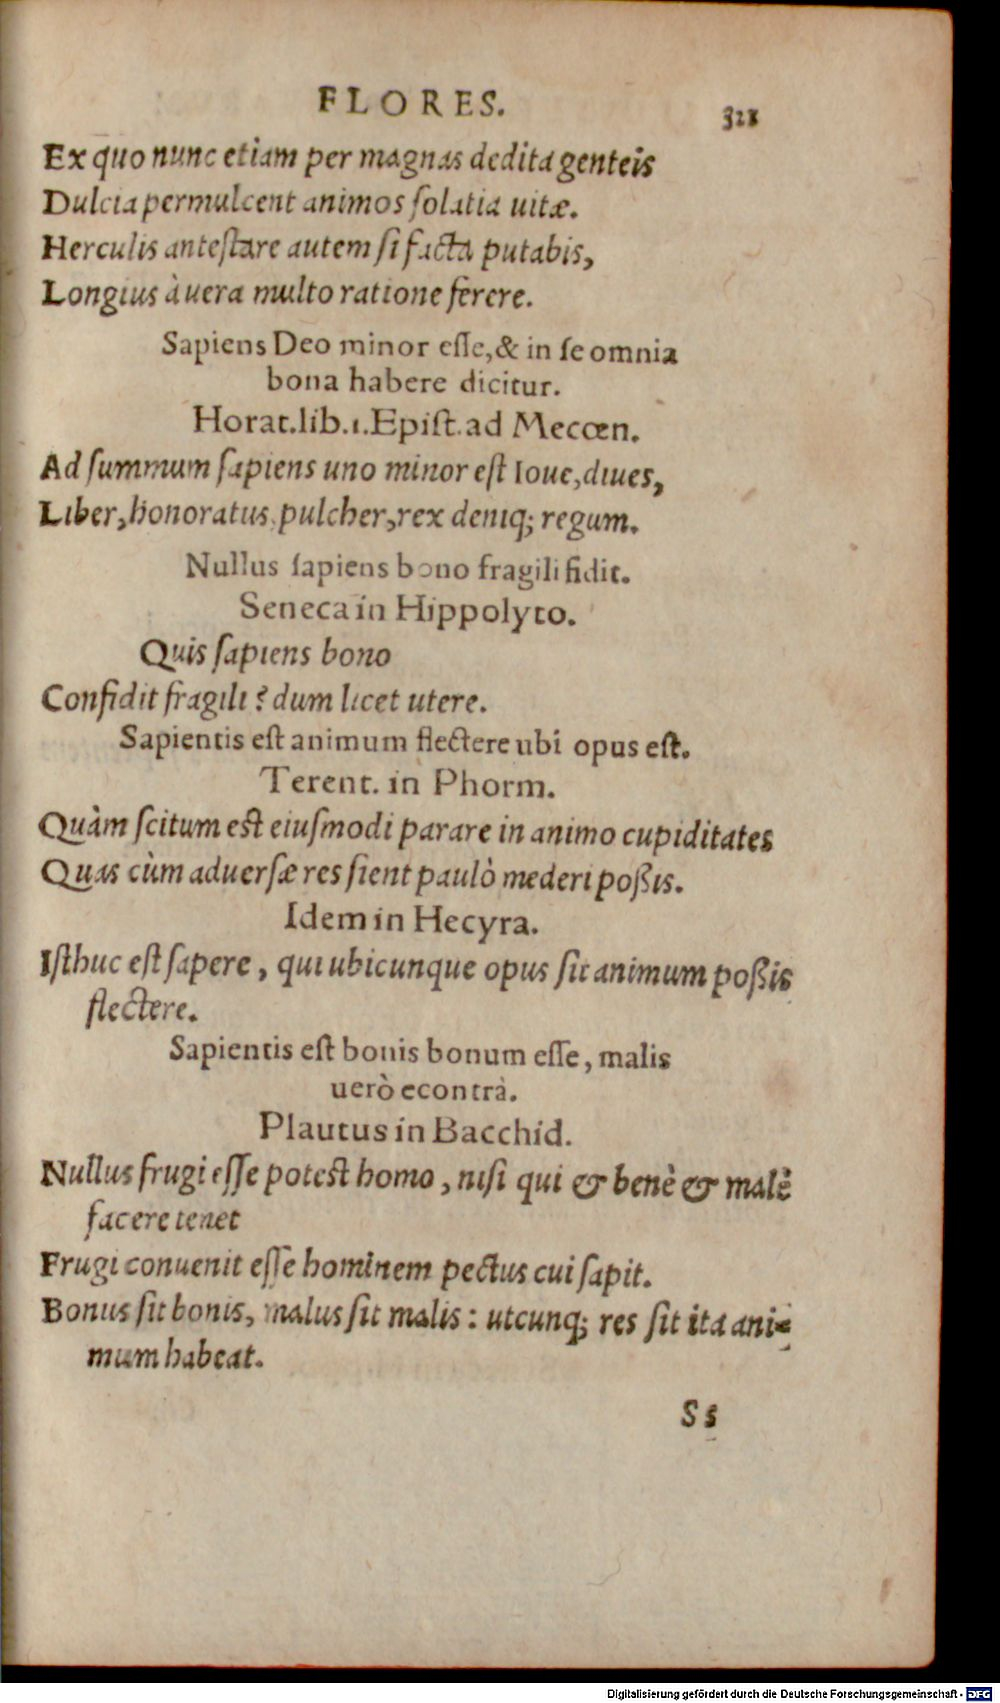 FLORES. 321
Ex quo nunc etiam per magnas dedita genteis
Dulcia permulcent animos ſolatia uitæ.
Herculis anteſtare autem ſi facta putabis,
Longius à uera multo ratione ferere.
Sapiens Deo minor eſſe, & in ſe omnia
bona habere dicitur.
Horat. lib. 1. Epiſt. ad Mecœn.
Ad ſummum ſapiens uno minor eſt Ioue, diues,
Liber, honoratus, pulcher, rex deniq; regum.
Nullus ſapiens bono fragili fidit.
Seneca in Hippolyto.
Quis ſapiens bono
Confidit fragili? dum licet utere.
Sapientis eſt animum flectere ubi opus eſt.
Terent. in Phorm.
Quàm ſcitum eſt eiuſmodi parare in animo cupiditates
Quas cùm aduerſæ res ſient paulò mederi poßis.
Idem in Hecyra.
Iſthuc eſt ſapere, qui ubicunque opus ſit animum poßis
flectere.
Sapientis eſt bonis bonum eſſe, malis
uerò econtrà.
Plautus in Bacchid.
Nullus frugi eſſe poteſt homo, niſi qui & benè & malè
facere tenet
Frugi conuenit eſſe hominem pectus cui ſapit.
Bonus ſit bonis, malus ſit malis: utcunq; res ſit ita ani-
mum habeat.
S s
Digitalisierung gefördert durch die Deutsche Forschungsgemeinschaft - DFG